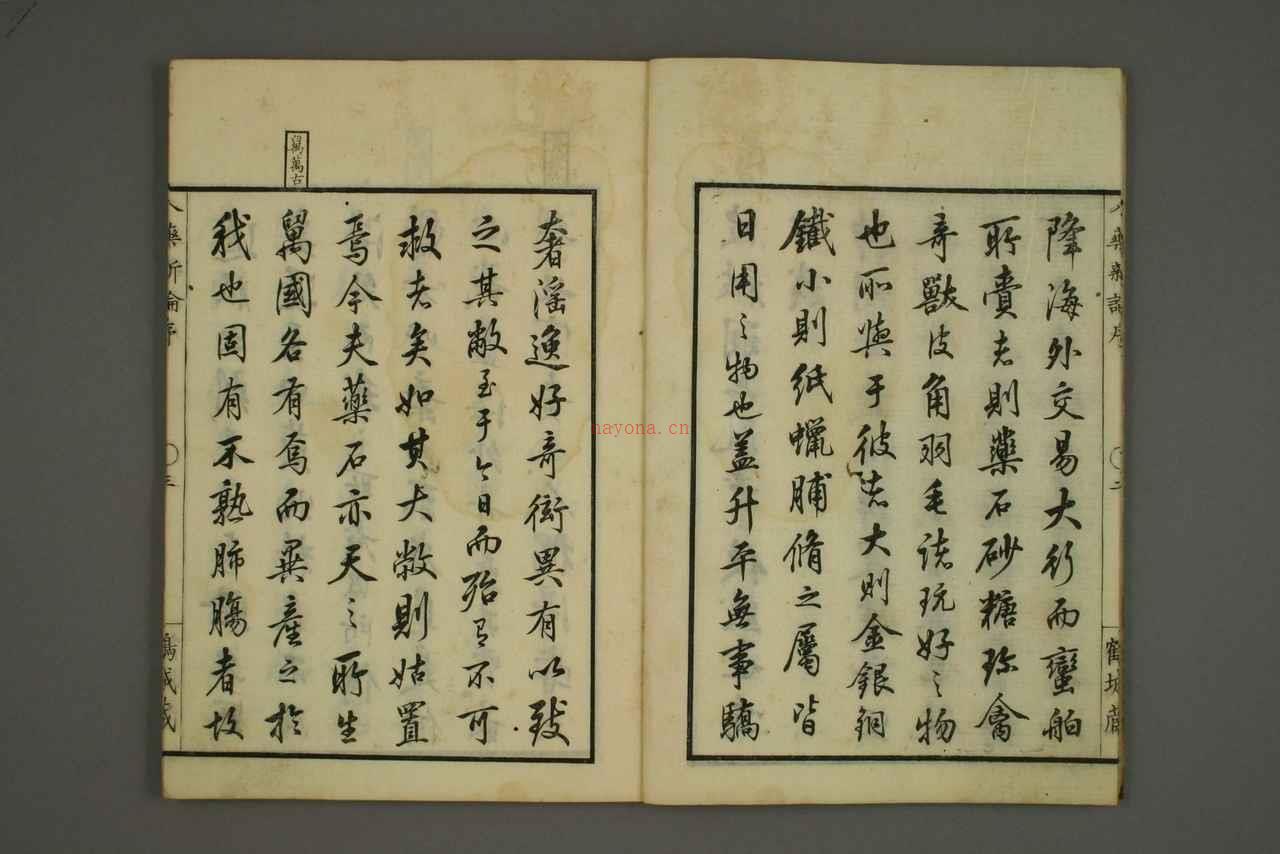 隆海外交易大行而蠻舶
所賣者則藥石砂糖珍禽
奇獸皮角羽毛諸玩好之物
也所與于彼者大則金銀銅
鐵小則紙蠟脯脩之屬皆
日用之物也蓋升平無事驕
鶴城藏
奢淫逸好奇衒異有以致
之其敝至于今日而殆有不可
救者矣如其大敝則姑置
焉今夫藥石亦天之所生
萬國各有焉而異產之於
我也固有不熟肺腸者故
萬萬古
三
hayona.cn